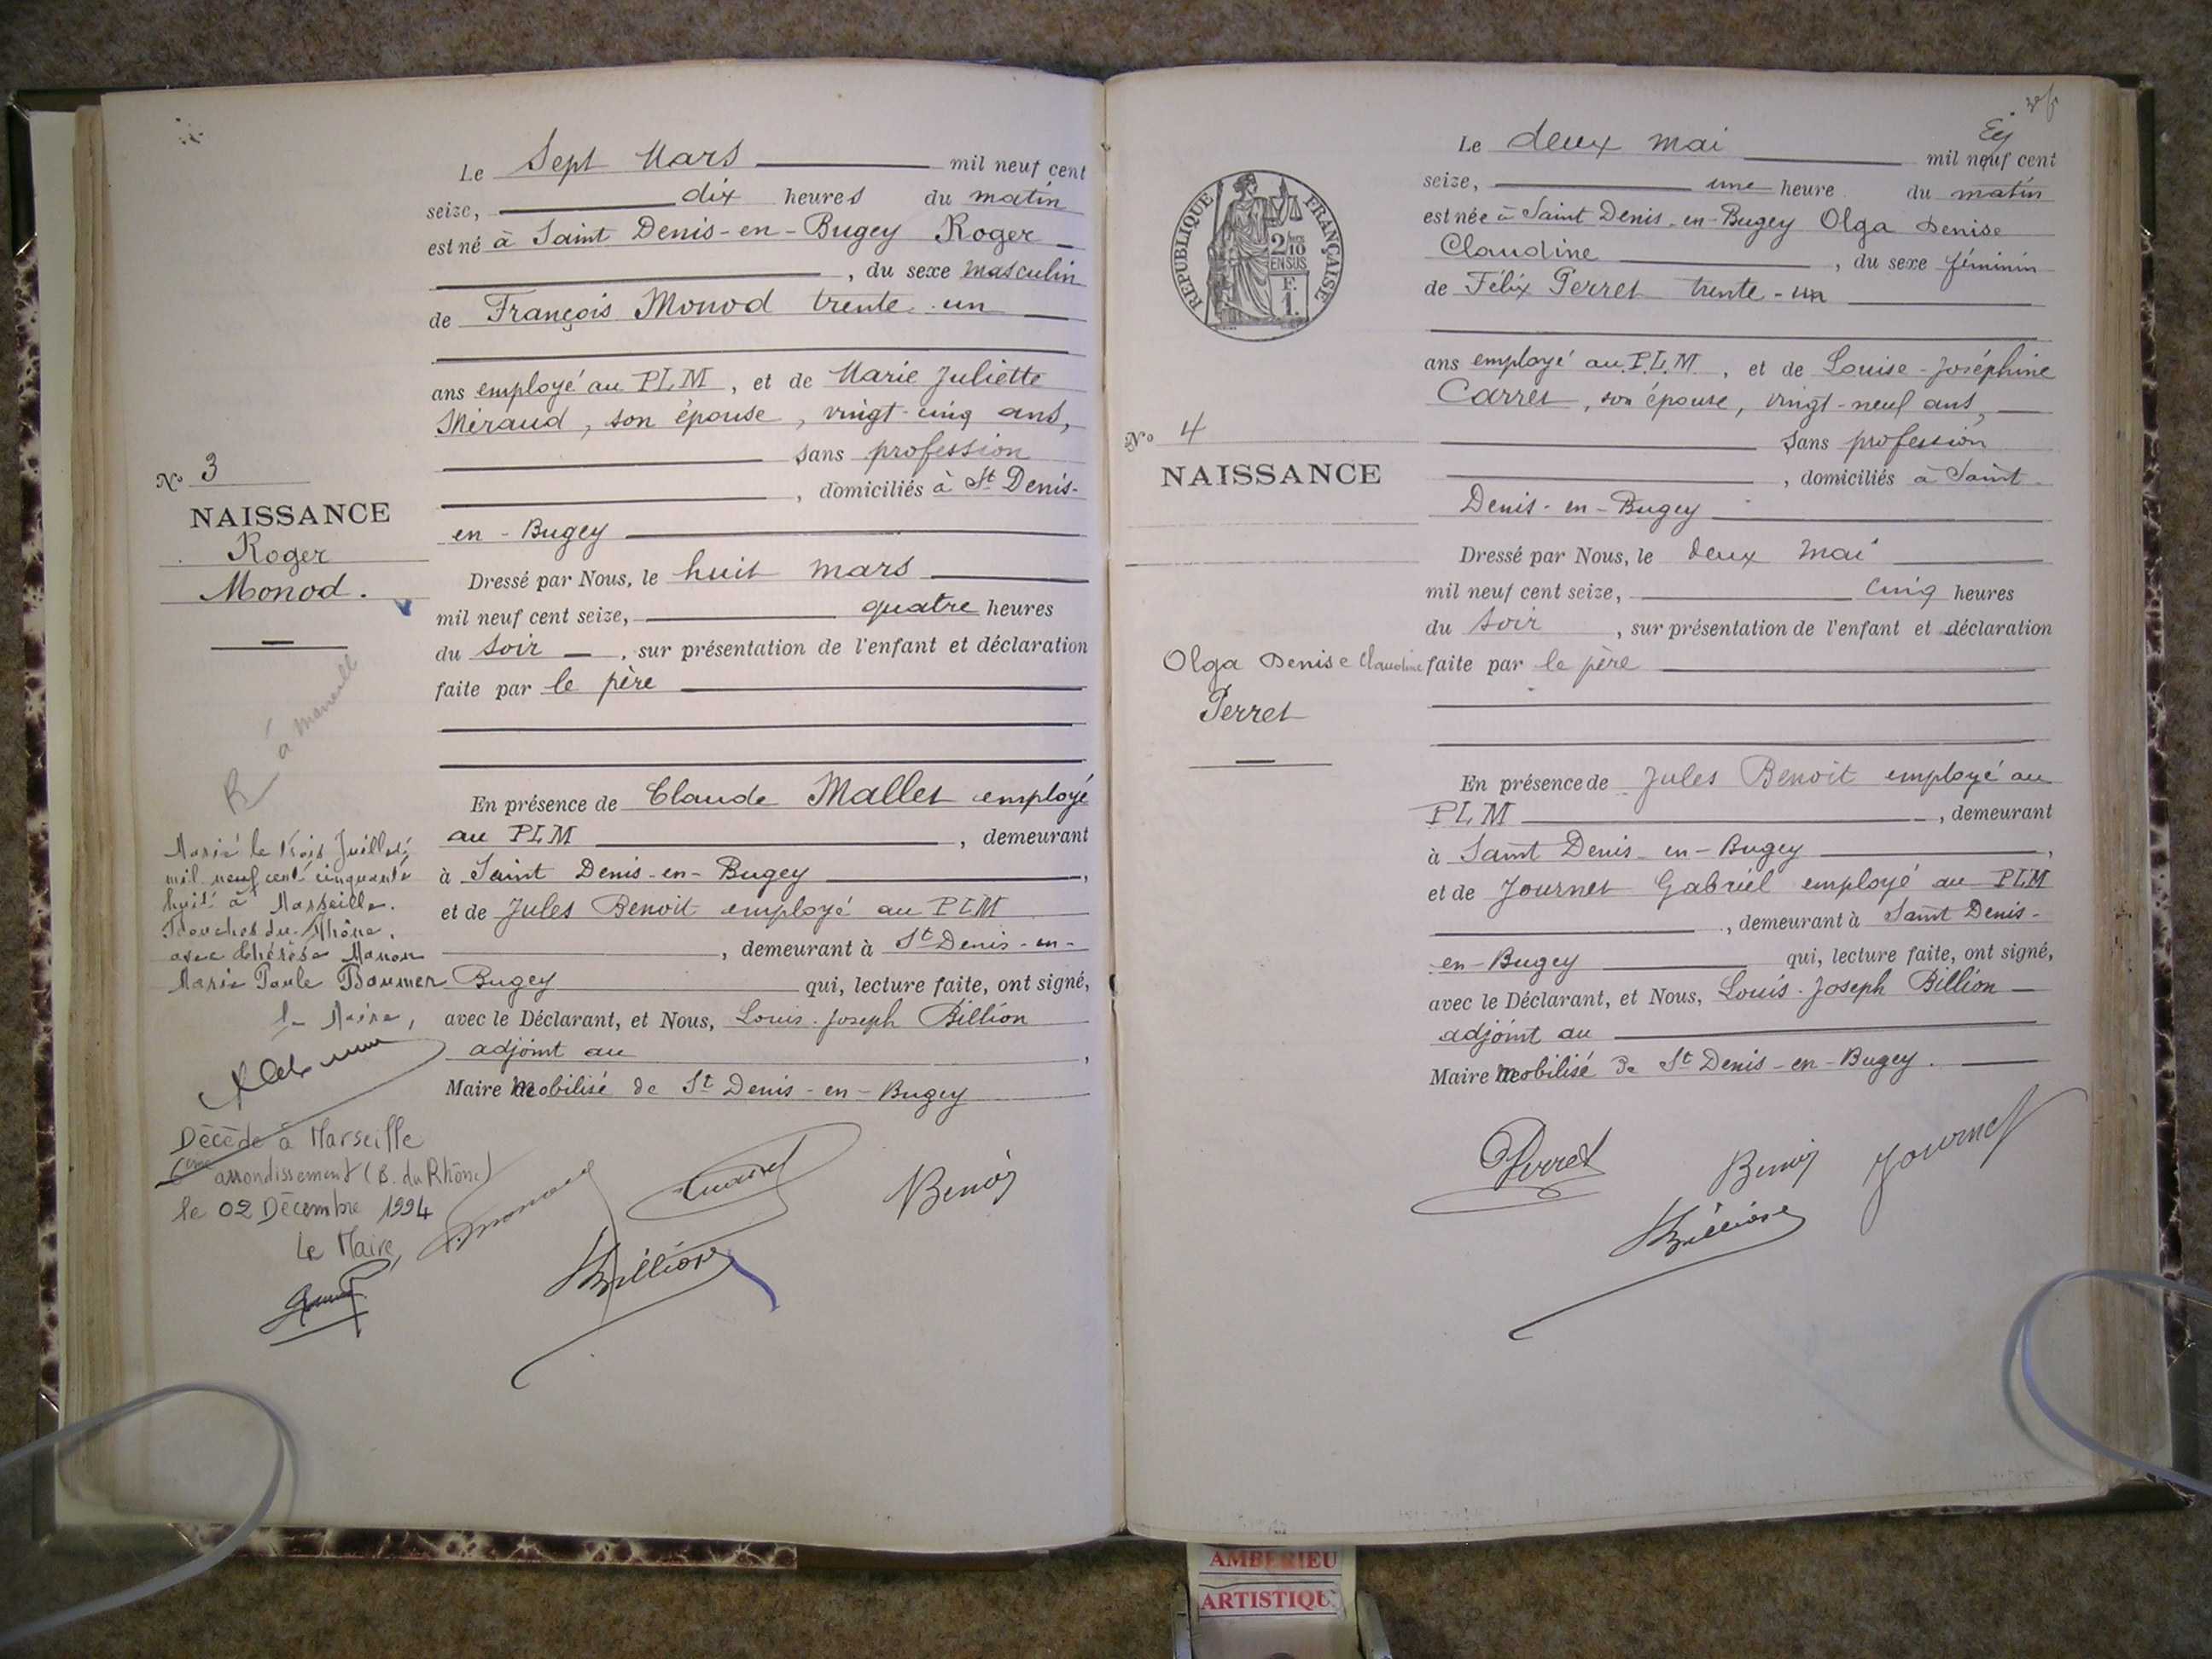 Le Sept Mars mil neuf cent
seize, dix heures du matin
est né à Saint Denis-en-Bugey Roger
, du sexe masculin
de François Monod trente-un
ans employé au PLM, et de Marie Juliette
Miraud, son épouse, vingt-cinq ans,
sans profession
, domiciliés à St Denis-
en-Bugey
Dressé par Nous, le huit mars
mil neuf cent seize, quatre heures
du soir, sur présentation de l'enfant et déclaration
faite par le père
En présence de Claude Mallet employé
au PLM, demeurant
à Saint Denis-en-Bugey,
et de Jules Benoit employé au PLM
, demeurant à St Denis-en-
Bugey qui, lecture faite, ont signé,
avec le Déclarant, et Nous, Louis-Joseph Billion
adjoint au,
Maire mobilisé de St Denis-en-Bugey
No 3
NAISSANCE
Roger
Monod.
R à
Marié le trois Juillet
mil neuf cent cinquante
huit à Marseille.
Bouches du Rhône.
avec Thérèse Manon
Marie Paule Baumer
Le Maire,
Décédé à Marseille
6ème arrondissement (B. du Rhône)
le 02 Décembre 1994
Le Maire,
Monod
Benoit
Billion
Le deux mai mil neuf cent
seize, une heure du matin
est née à Saint Denis-en-Bugey Olga Denise
Claudine, du sexe féminin
de Félix Perret trente-un
ans employé au P.L.M., et de Louise-Joséphine
Carret, son épouse, vingt-neuf ans,
sans profession
, domiciliés à Saint-
Denis-en-Bugey
Dressé par Nous, le deux mai
mil neuf cent seize, cinq heures
du soir, sur présentation de l'enfant et déclaration
faite par le père
En présence de Jules Benoit employé au
PLM, demeurant
à Saint Denis-en-Bugey,
et de Journet Gabriel employé au PLM
, demeurant à Saint Denis-
en-Bugey qui, lecture faite, ont signé,
avec le Déclarant, et Nous, Louis-Joseph Billion
adjoint au
Maire mobilisé de St Denis-en-Bugey.
RÉPUBLIQUE FRANÇAISE
2/10
EN SUS
F.
1.
No 4
NAISSANCE
Olga Denise Claudine
Perret
Perret
Benoit
Journet
Billion
AMBERIEU
ARTISTIQU